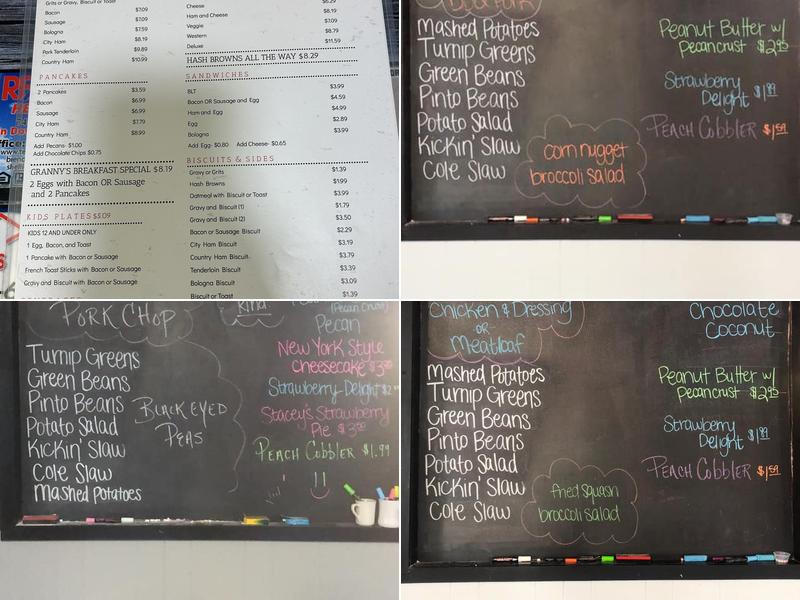 Grits or Gravy, Biscuit or Toast
Bacon $7.09
Sausage $7.09
Bologna $7.59
City Ham $8.19
Pork Tenderloin $9.89
Country Ham $10.99
PANCAKES
2 Pancakes $3.59
Bacon $6.99
Sausage $6.99
City Ham $7.79
Country Ham $8.99
Add Pecans- $1.00
Add Chocolate Chips $0.75
GRANNY'S BREAKFAST SPECIAL $8.19
2 Eggs with Bacon OR Sausage
and 2 Pancakes
KIDS PLATES $5.09
KIDS 12 AND UNDER ONLY
1 Egg, Bacon, and Toast
1 Pancake with Bacon or Sausage
French Toast Sticks with Bacon or Sausage
Gravy and Biscuit with Bacon or Sausage
Cheese
Ham and Cheese $8.19
Veggie $7.09
Western $8.79
Deluxe $11.59
HASH BROWNS ALL THE WAY $8.29
SANDWICHES
BLT $3.99
Bacon OR Sausage and Egg $4.59
Ham and Egg $4.99
Egg $2.89
Bologna $3.99
Add Egg- $0.80 Add Cheese- $0.65
BISCUITS & SIDES
Gravy or Grits $1.39
Hash Browns $1.99
Oatmeal with Biscuit or Toast $3.99
Gravy and Biscuit (1) $1.79
Gravy and Biscuit (2) $3.50
Bacon or Sausage Biscuit $2.29
City Ham Biscuit $3.19
Country Ham Biscuit $3.79
Tenderloin Biscuit $3.39
Bologna Biscuit $3.09
Biscuit or Toast $1.39
Mashed Potatoes
Turnip Greens
Green Beans
Pinto Beans
Potato Salad
Kickin' Slaw
Cole Slaw
corn nugget
broccoli salad
Peanut Butter w/
pecancrust $2.95
Strawberry
Delight $1.99
Peach Cobbler $1.59
Pork Chop
Turnip Greens
Green Beans
Pinto Beans
Potato Salad
Kickin' Slaw
Cole Slaw
Mashed Potatoes
Black Eyed
Peas
(Pecan Crust)
Pecan
New York Style
Cheesecake
Strawberry Delight
Stacey's Strawberry
Pie
Peach Cobbler $1.99
Chicken & Dressing
-or-
Meatloaf
Mashed Potatoes
Turnip Greens
Green Beans
Pinto Beans
Potato Salad
Kickin' Slaw
Cole Slaw
fried squash
broccoli salad
Chocolate
Coconut
Peanut Butter w/
pecancrust $2.95
Strawberry
Delight $1.99
Peach Cobbler $1.59